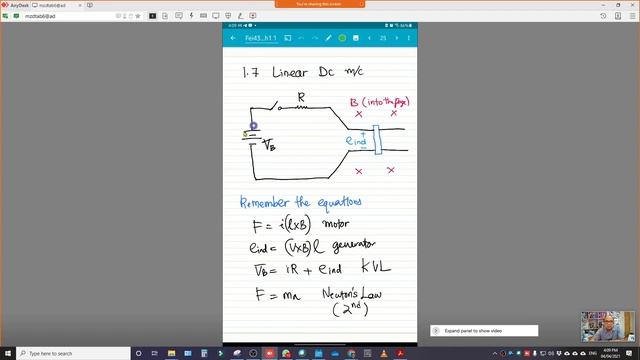 AnyDesk
mzdtab6@ad
You're sharing this screen
4:09 PM
86%
Fei43...h1 1
25
1.7 Linear DC m/c
R
B (into the page)
x x
+
eind
-
VB
x x
Remember the equations
F = i(l×B) motor
eind = (v×B)l generator
VB = iR + eind KVL
F = ma Newton's Law
(2nd)
Expand panel to show video
Type here to search
ENG
4:09 PM
04/04/2021